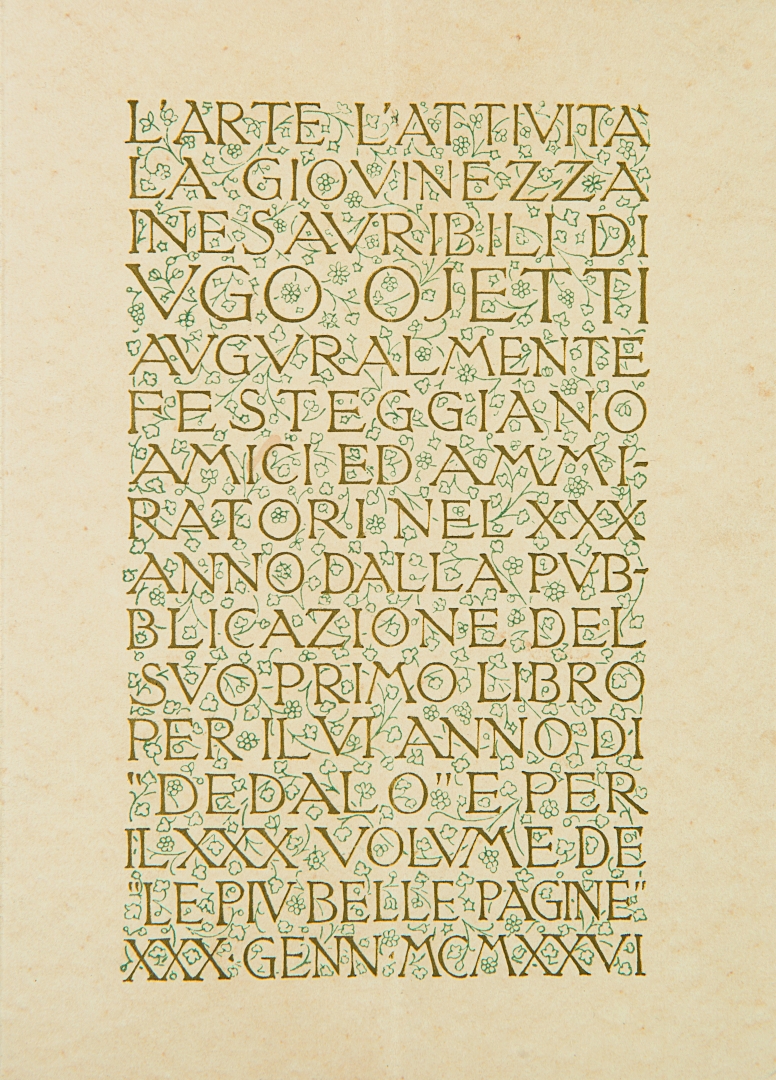 L'ARTE L'ATTIVITA
LA GIOVINEZZA
INESAVRIBILI DI
VGO OJETTI
AVGVRALMENTE
FESTEGGIANO
AMICI ED AMMI-
RATORI NEL XXX
ANNO DALLA PVB-
BLICAZIONE DEL
SVO PRIMO LIBRO
PER IL VI ANNO DI
"DEDALO" E PER
IL XXX VOLVME DE
"LE PIV BELLE PAGINE"
XXX·GENN·MCMXXVI